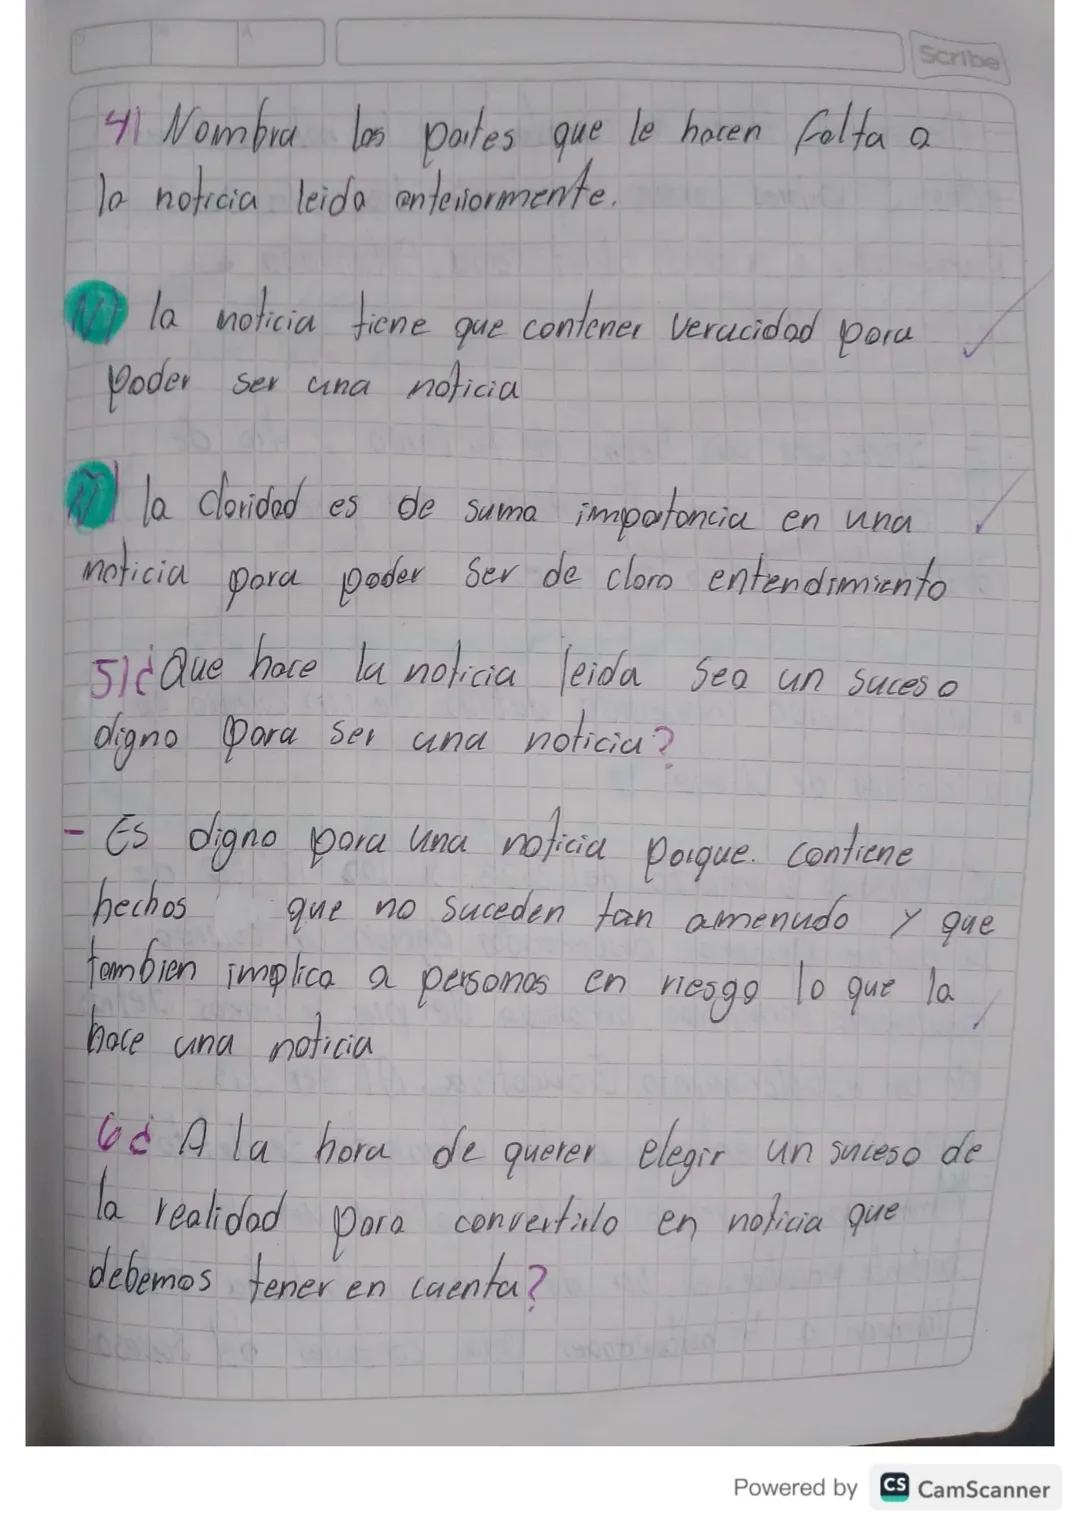 Scribe
4) Nombra las partes que le hacen falta a
la noticia leida anteriormente.
N) la noticia tiene que contener veracidad para
poder ser una noticia
Ñ) la claridad es de suma impotancia en una
noticia para poder ser de claro entendimiento
5) ¿Que hace la noticia leida sea un suceso
digno para ser una noticia?
- Es digno para una noticia porque. contiene
hechos que no suceden tan amenudo y que
tambien implica a personas en riesgo lo que la
hace una noticia
6 ¿ A la hora de querer elegir un suceso de
la realidad para convertirlo en noticia que
debemos tener en cuenta?
Powered by CS CamScanner